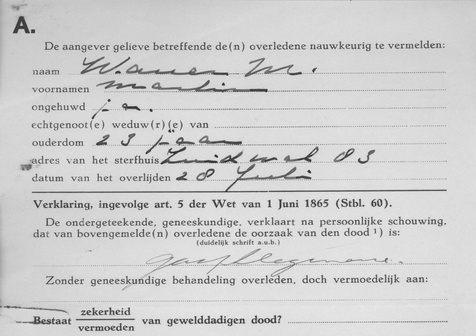 A.
De aangever gelieve betreffende de(n) overledene nauwkeurig te vermelden:
naam M.
voornamen Martin
ongehuwd ja.
echtgenoot(e) weduw(r)(e) van
ouderdom 23 jaar
adres van het sterfhuis Zuidwal 83
datum van het overlijden 28 Juli
Verklaring, ingevolge art. 5 der Wet van 1 Juni 1865 (Stbl. 60).
De ondergeteekende, geneeskundige, verklaart na persoonlijke schouwing,
dat van bovengemelde(n) overledene de oorzaak van den dood ¹) is:
(duidelijk schrift a.u.b.)
Zonder geneeskundige behandeling overleden, doch vermoedelijk aan:
Bestaat zekerheid
vermoeden van gewelddadigen dood?